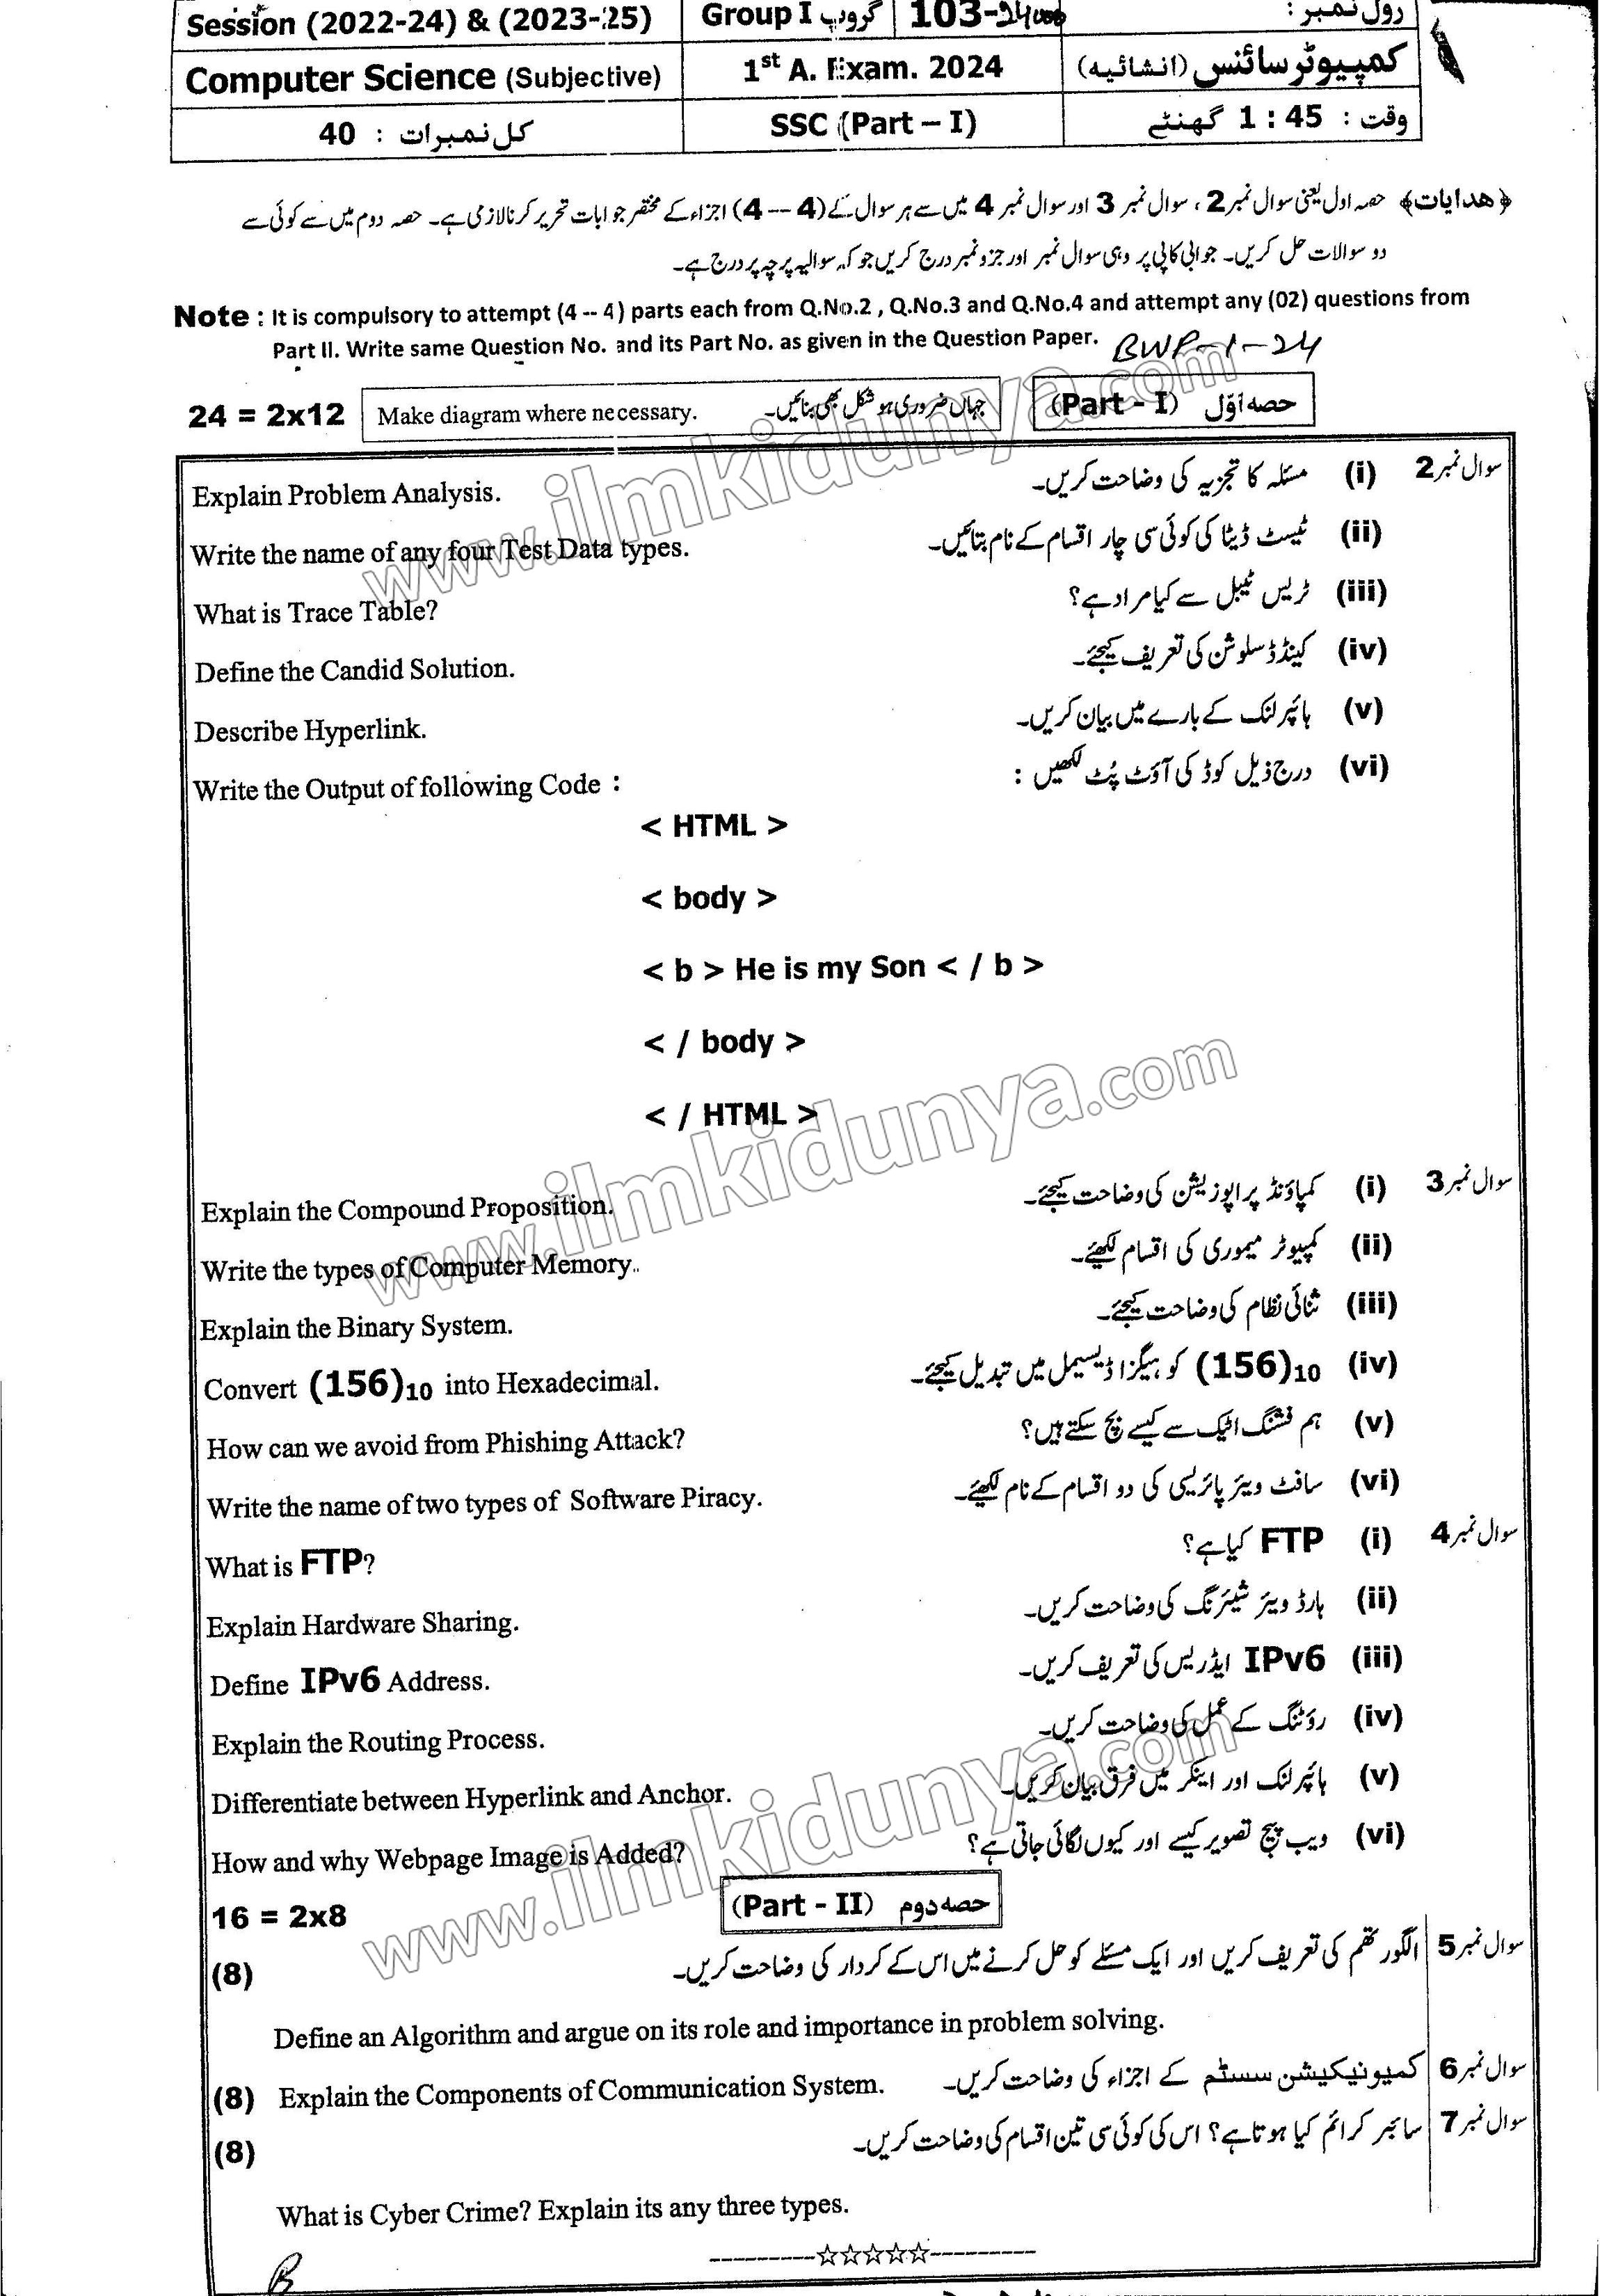 Session (2022-24) & (2023-25) Group I گروپ 103-24000 رول نمبر :
Computer Science (Subjective) 1st A. Exam. 2024 کمپیوٹر سائنس (انشائیہ)
کل نمبرات : 40 SSC (Part – I) وقت : 1 : 45 گھنٹے
﴿ھدایات﴾ حصہ اول یعنی سوال نمبر 2 ، سوال نمبر 3 اور سوال نمبر 4 میں سے ہر سوال کے (4 -- 4) اجزاء کے مختصر جوابات تحریر کرنا لازمی ہے۔ حصہ دوم میں سے کوئی سے
دو سوالات حل کریں۔ جوابی کاپی پر وہی سوال نمبر اور جزو نمبر درج کریں جو کہ سوالیہ پرچہ پر درج ہے۔
Note : It is compulsory to attempt (4 -- 4) parts each from Q.No.2 , Q.No.3 and Q.No.4 and attempt any (02) questions from
Part II. Write same Question No. and its Part No. as given in the Question Paper. BWP-1-24
24 = 2x12 Make diagram where necessary. جہاں ضروری ہو شکل بھی بنائیں۔ (Part - I) حصہ اوّل
Explain Problem Analysis. سوال نمبر 2 (i) مسئلہ کا تجزیہ کی وضاحت کریں۔
Write the name of any four Test Data types. (ii) ٹیسٹ ڈیٹا کی کوئی سی چار اقسام کے نام بتائیں۔
What is Trace Table? (iii) ٹریس ٹیبل سے کیا مراد ہے؟
Define the Candid Solution. (iv) کینڈڈ سلوشن کی تعریف کیجئے۔
Describe Hyperlink. (v) ہائپر لنک کے بارے میں بیان کریں۔
Write the Output of following Code : (vi) درج ذیل کوڈ کی آؤٹ پُٹ لکھیں :
< HTML >
< body >
< b > He is my Son < / b >
< / body >
< / HTML >
Explain the Compound Proposition. سوال نمبر 3 (i) کمپاؤنڈ پراپوزیشن کی وضاحت کیجئے۔
Write the types of Computer Memory. (ii) کمپیوٹر میموری کی اقسام لکھیئے۔
Explain the Binary System. (iii) ثنائی نظام کی وضاحت کیجئے۔
Convert (156)10 into Hexadecimal. (iv) (156)10 کو ہیگزا ڈیسیمل میں تبدیل کیجئے۔
How can we avoid from Phishing Attack? (v) ہم فشنگ اٹیک سے کیسے بچ سکتے ہیں؟
Write the name of two types of Software Piracy. (vi) سافٹ ویئر پائریسی کی دو اقسام کے نام لکھیئے۔
What is FTP? سوال نمبر 4 (i) FTP کیا ہے؟
Explain Hardware Sharing. (ii) ہارڈ ویئر شیئرنگ کی وضاحت کریں۔
Define IPv6 Address. (iii) IPv6 ایڈریس کی تعریف کریں۔
Explain the Routing Process. (iv) روٹنگ کے عمل کی وضاحت کریں۔
Differentiate between Hyperlink and Anchor. (v) ہائپر لنک اور اینکر میں فرق بیان کریں۔
How and why Webpage Image is Added? (vi) ویب پیج تصویر کیسے اور کیوں لگائی جاتی ہے؟
16 = 2x8 (Part - II) حصہ دوم
(8) سوال نمبر 5 الگورتھم کی تعریف کریں اور ایک مسئلے کو حل کرنے میں اس کے کردار کی وضاحت کریں۔
Define an Algorithm and argue on its role and importance in problem solving.
(8) Explain the Components of Communication System. سوال نمبر 6 کمیونیکیشن سسٹم کے اجزاء کی وضاحت کریں۔
(8) سوال نمبر 7 سائبر کرائم کیا ہوتا ہے؟ اس کی کوئی سی تین اقسام کی وضاحت کریں۔
What is Cyber Crime? Explain its any three types.
---------☆☆☆☆☆---------
www.ilmkidunya.com
www.ilmkidunya.com
www.ilmkidunya.com